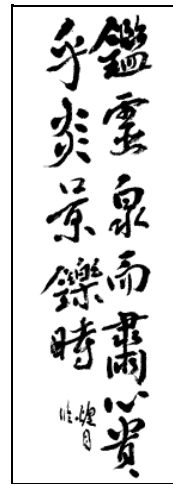 鑑靈泉而肅心賞
乎炎景鑠時